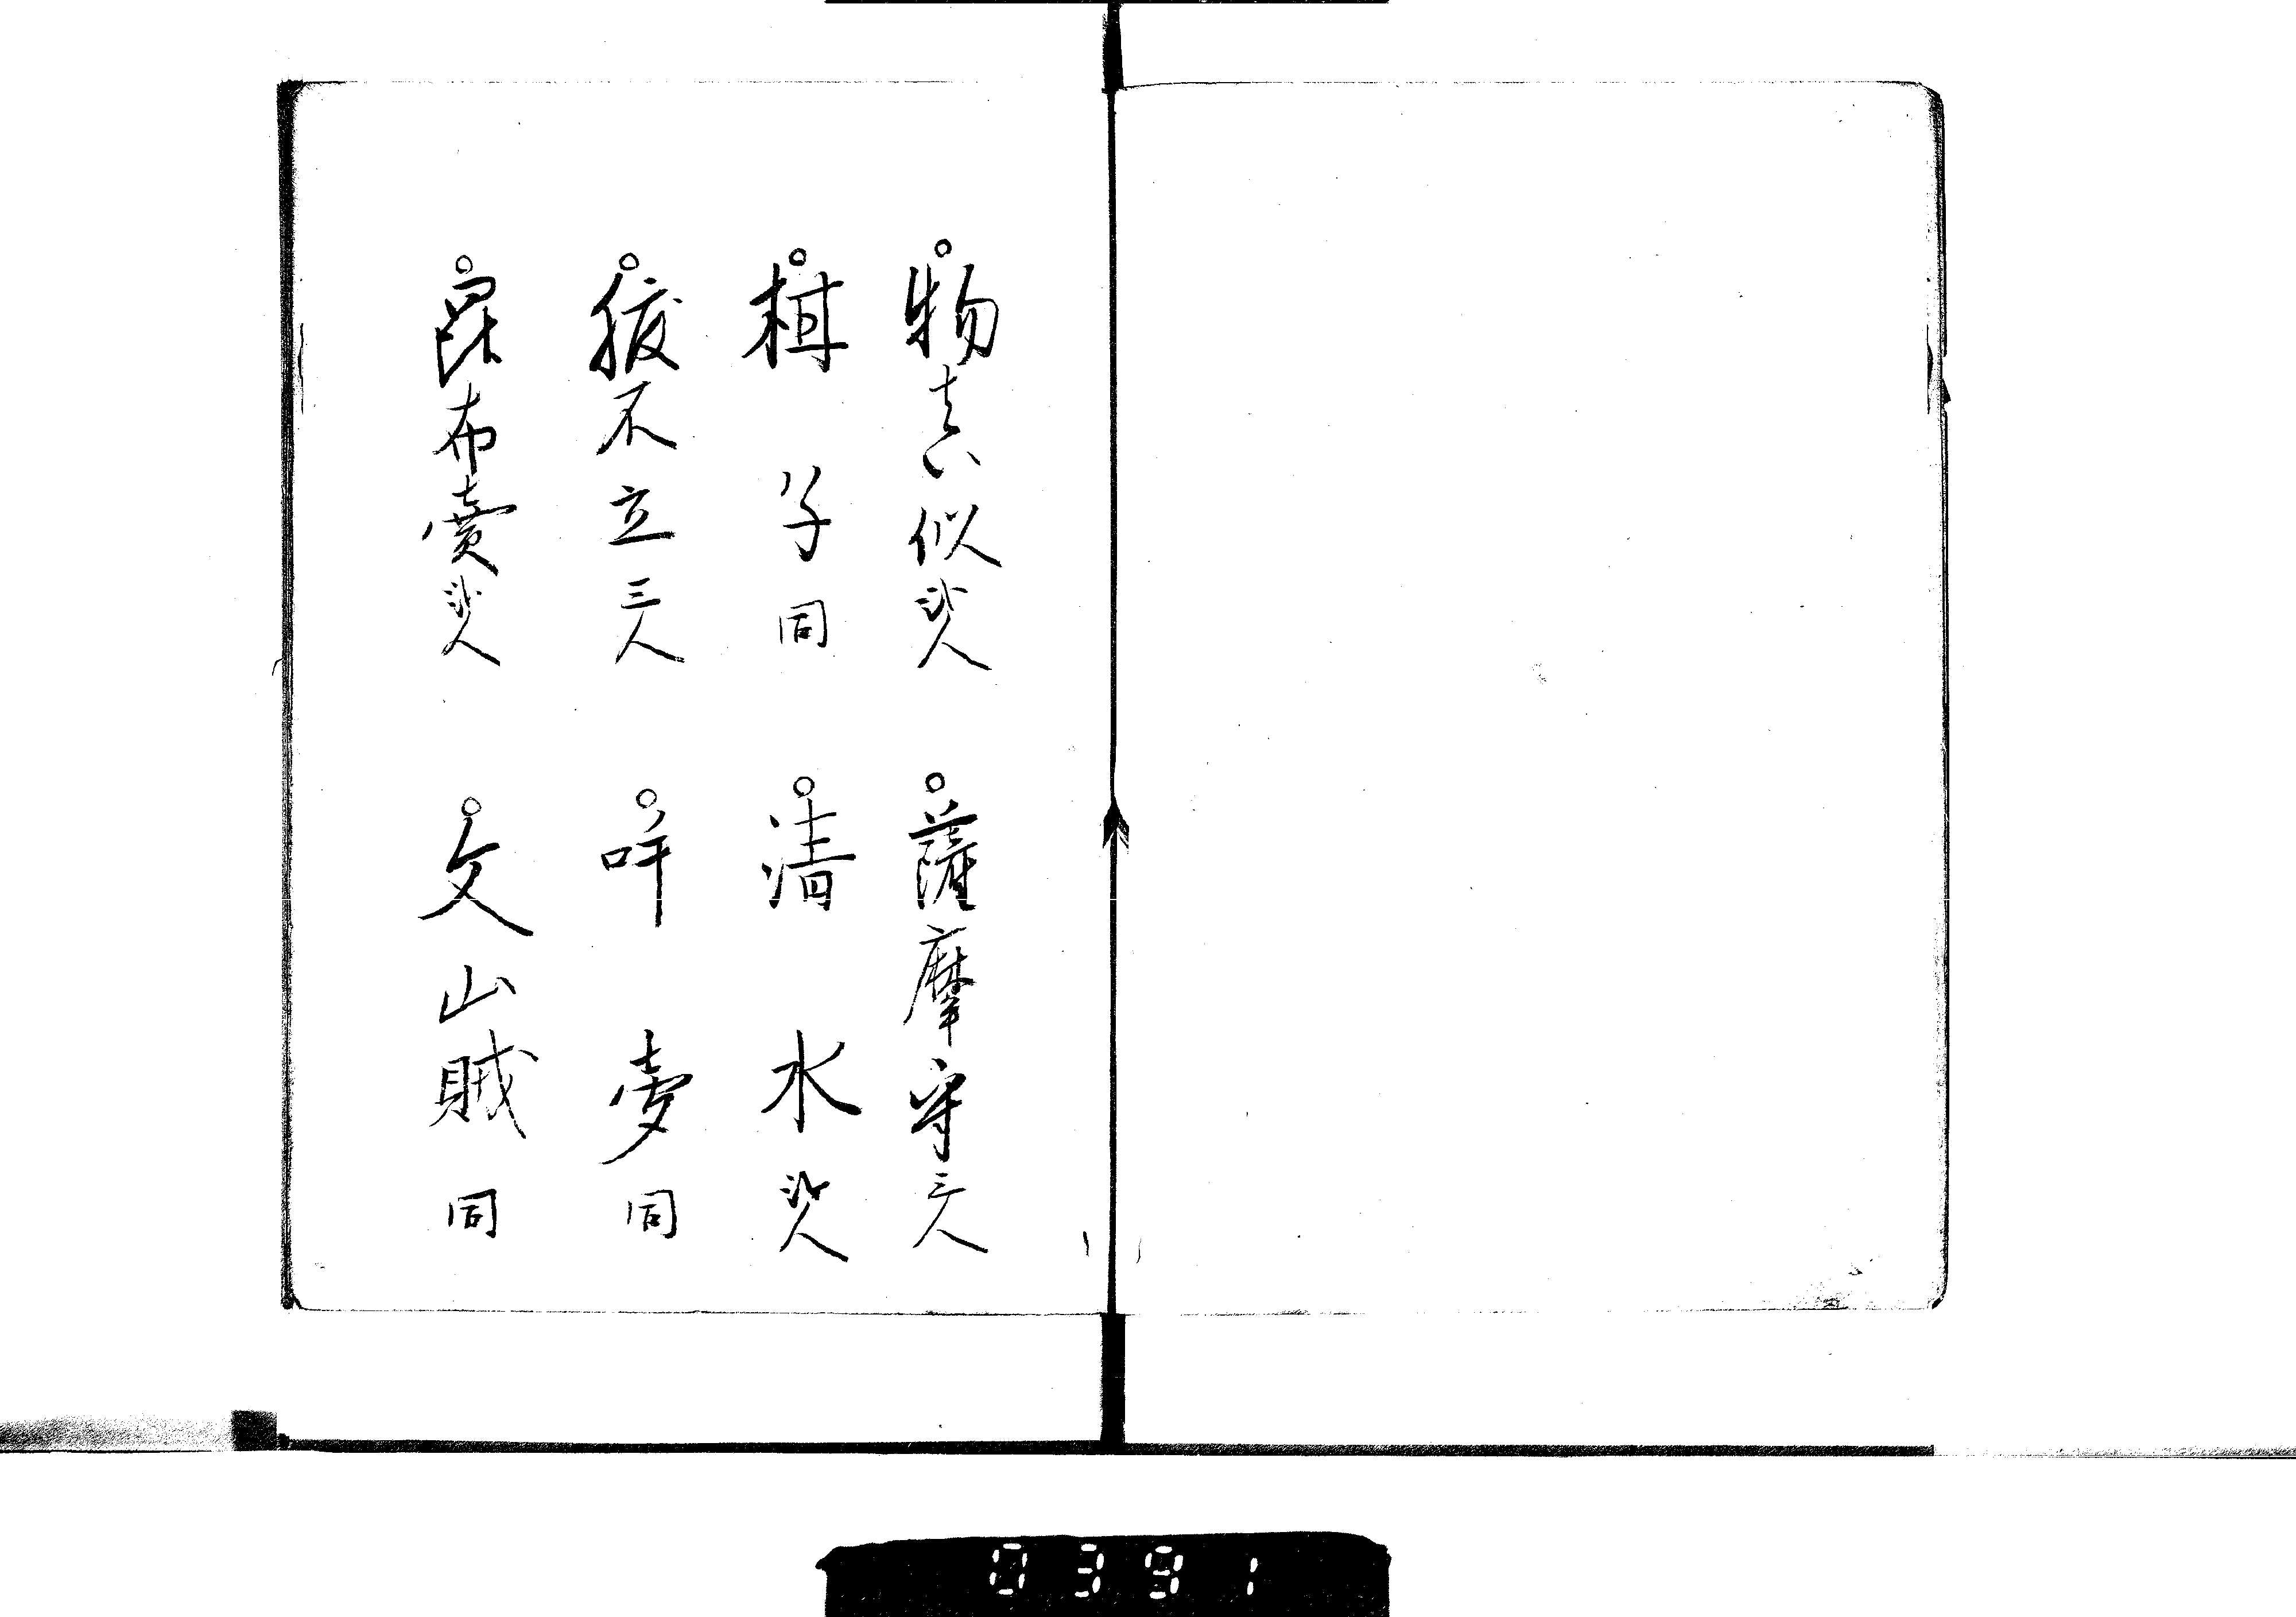 物真似弐人　薩摩守三人
柑子同　清水弐人
腹不立三人　呼声同
昆布賣弐人　文山賊同
0391